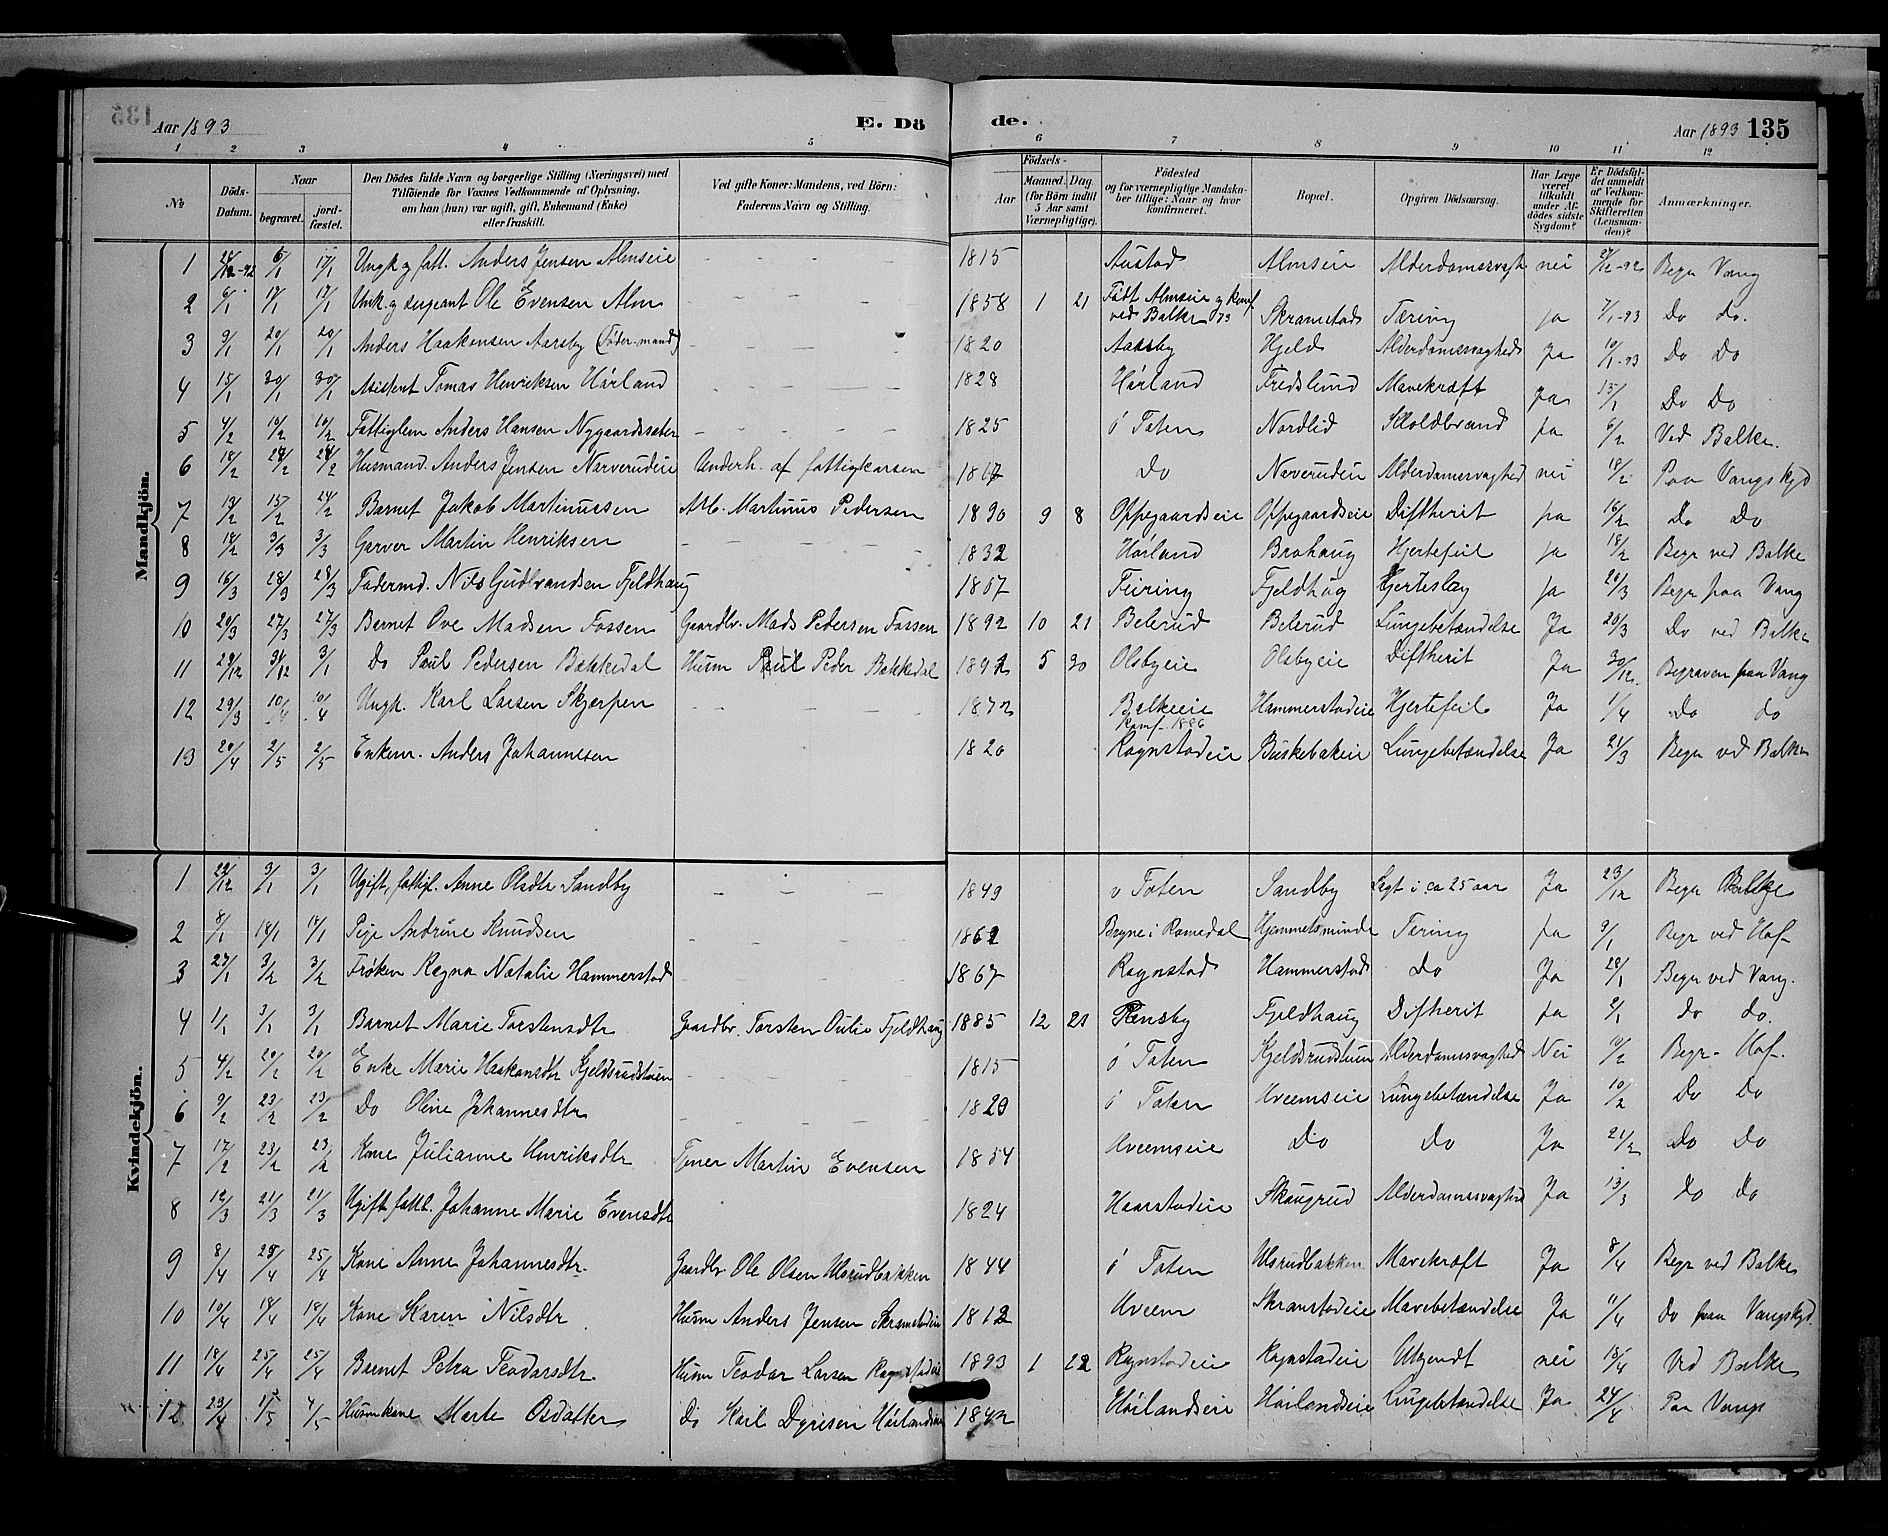 135
Aar 1893 E. Dö de. Aar 1893 135
1 2 3 4 5 6 7 8 9 10 11 12
No
Döds-Datum.
Naar
begravet.
jord-fæstet.
Den Dödes fulde Navn og borgerlige Stilling (Næringsvei) med
Tilföiende for Voxnes Vedkommende af Oplysning,
om han (hun) var ugift, gift, Enkemand (Enke)
eller fraskilt.
Ved gifte Koner: Mandens, ved Börn:
Faderens Navn og Stilling.
Födsels-
Aar
Maaned. Dag.
(for Börn indtil
5 Aar samt
Værnepligtige).
Födested
og for værnepligtige Mandskaber tillige: Naar og hvor
konfirmeret.
Bopæl.
Opgiven Dödsaarsag.
Har Læge
været
tilkaldt
under Afdödes sidste
Sygdom?
Er Dödsfaldet anmeldt
af Vedkommende for
Skifteretten
(Lensmanden)?
Anmærkninger.
Mandkjön.
1 6/1 17/1 Ungk og fatt. Anders Jensen Almseie - - - - 1815 Austad Almseie Alderdomssvagh nei 27/12-92 Begr Vang
2 6/1 17/1 17/1 Unk. og sergeant Ole Evensen Alm - - - - 1858 1 21 Født Almseie og konf ved Balke 73 Skramstad Tæring ja 7/1-93 Do do.
3 9/1 20/1 20/1 Anders Haakensen Aarsby (Føder.mand) - - - - 1820 Aarsby Hjeld Alderdomssvaghed Ja 10/1-93 Do Do
4 15/1 30/1 30/1 Asistent Tomas Henriksen Hörland - - - - 1828 Hörland Fredslund Mavekræft Ja 15/1 Do Do
5 4/2 10/2 10/2 Fattiglem Anders Hansen Nygaardssæter - - - - 1825 ö Toten Nordlid Skoldbrand ja 6/2 Ved Balke.
6 18/2 24/2 24/2 Husmand. Anders Jensen Narverudeie Underh. af fattigkassen 1817 Do Naverudeie Alderdomssvaghed nei 18/2 Paa Vangskgd
7 13/2 15/2 24/2 Barnet Jakob Martinussen Arb. Martinus Pedersen 1890 9 8 Oppegaardseie Oppegaardseie Diftherit ja 16/2 Do Do
8 18/2 3/3 3/3 Garver Martin Henriksen - - - - 1832 Hörland Brohaug Hjertefeil ja 18/2 Begr ved Balke
9 16/3 28/3 28/3 Födermd. Nils Gudbrandsen Fjeldhaug 1807 Feiring Fjeldhug Hjerteslag ja 20/3 Begr paa Vang
10 20/3 27/3 27/3 Barnet Ove Madsen Fossen Gaardbr. Mads Pedersen Fossen 1892 10 21 Belerud Belerud Lungebetændelse Ja 20/3 Do ved Balke
11 29/12 31/12 3/1 Do Paul Pedersen Bækkedal Husm Paul Peder Bækkedal 1892 5 30 Olsbyeie Olsbyeie Diftherit Ja 30/12 Begraven paa Vang
12 29/3 10/4 10/4 Ungk. Karl Larsen Skjerpen - - - - 1872 Balkeeie Konf. 1886 Hammerstadeie Hjertefeil Ja 1/4 do do
13 20/4 2/5 2/5 Enkem. Anders Johannesen 1820 Rognstadeie Buskebakeie Lungebetændelse Ja 21/3 Begr ved Balke
Kvindekjön.
1 22/12 3/1 3/1 Ugift, fattigl. Anne Olsdtr Sandby - - - 1849 v Toten Sandby Legt i ca 25 aar Ja 23/12 Begr Balke
2 8/1 18/1 18/1 Pige Andrine Knudsen - - - - 1862 Bryne i Romedal Hjemmetsminde Tering ja 9/1 Begr ved Hof-
3 27/1 3/2 3/2 Frøken Regna Natalie Hammerstad - - - - 1867 Rognstad Hammerstad Do Ja 28/1 Begr ved Vang.
4 1/1 3/1 3/1 Barnet Marie Torstensdtr Gaardbr. Torsten Oulie Fjeldhaug 1885 12 21 Rensby Fjeldhaug Diftherit ja 2/1 do do.
5 4/2 20/2 20/2 Enke Marie Haakonsdtr Kjeldsrudstuen - - - - 1815 ö Toten Kjeldsrudstuen Alderdomssvaghed Nei 10/2 Begr- Hof-
6 9/2 23/2 23/2 Do Oline Johannesdtr - - - - 1820 ö Toten Hveemseie Lungebetændelse Ja 10/2 Do Do
7 17/2 23/2 23/2 Kone Julianne Henriksdtr Tjener Martin Evensen 1854 Hveemseie Do Do Ja 21/2 Do Do
8 12/3 21/3 21/3 Ugift fattl. Johanne Marie Evensdtr 1824 Haarstadeie Skaugrud Alderdomssvaghed Ja 13/3 do do
9 8/4 25/4 25/4 Kone Anne Johannesdtr. Gaardbr Ole Olsen Ulsrudbakken 1844 ö Toten Ulsrudbakken Mavekræft Ja 8/4 Begr ved Balke
10 10/4 18/4 18/4 Kone Karen Nilsdtr Husm Anders Jensen Skramstadeie 1812 Hveem Skramstadeie Mavebetændelse Ja 11/4 do paa Vangskgd.
11 18/4 25/4 25/4 Barnet Petra Teodorsdtr. Husm Teodor Larsen Rognstadeie 1893 1 22 Rognstadeie Rognstadeie Ukjendt nei 18/4 Ved Balke
12 23/4 Husmkone Marte Osdatter Do Karl Dyresen Höilandseie 1842 Höilandseie Höilandseie Lungebetændelse Ja 24/4 Paa Vangs